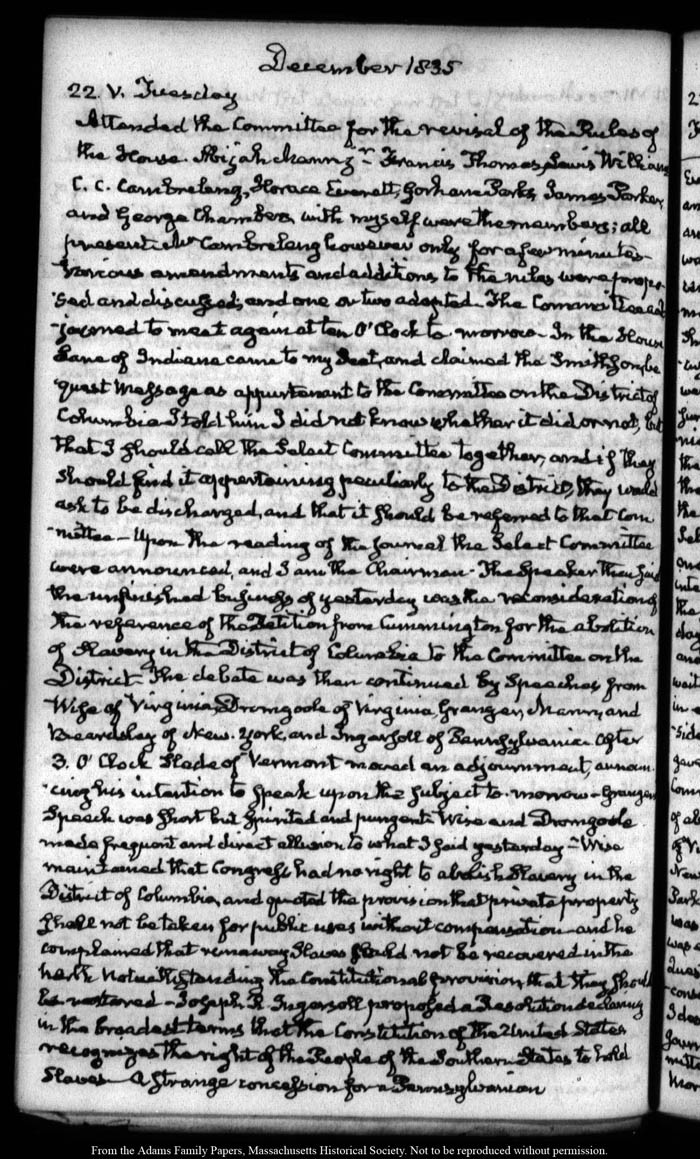 December 1835
22. V. Tuesday
Attended the Committee for the revisal of the Rules of
the House. Abijah Mann jr. Francis Thomas, Lewis Williams
C. C. Cambreleng, Horace Everett, Gorham Parks, James Parker,
and George Chambers, with myself were the members; all
present. Mr Cambreleng however only for a few minutes—
Various amendments and additions to the rules were propo-
sed and discussed, and one or two adopted. The Committee ad
-journed to meet again at ten O'Clock to-morrow— In the House
Lane of Indiana came to my Seat, and claimed the Smithson be
quest Message as appurtenant to the Committee on the District of
Columbia. I told him I did not know whether it did or not, but
that I should call the Select Committee together, and if they
should find it appertaining peculiarly to the District, they would
ask to be discharged, and that it should be referred to that Com
-mittee— Upon the reading of the journal the Select Committee
were announced, and I am the Chairman. The Speaker then said
the unfinished business of yesterday was the reconsideration of
the reference of the Petition from Cummington for the abolition
of Slavery in the District of Columbia to the Committee on the
District. The debate was then continued by Speeches from
Wise of Virginia, Dromgoole of Virginia, Granger, Mann, and
Beardsley of New-York, and Ingersoll of Pennsylvania. After
3. O'Clock Slade of Vermont moved an adjournment, announ
-cing his intention to speak upon the subject to-morrow— Granger's
Speech was short but spirited and pungent. Wise and Dromgoole
made frequent and direct allusion to what I said yesterday— Wise
maintained that Congress had no right to abolish Slavery in the
District of Columbia, and quoted the provision that private property
shall not be taken for public uses without compensation— and he
complained that runaway Slaves should not be recovered in the
north notwithstanding the Constitutional provision that they should
be restored— Joseph R. Ingersoll proposed a Resolution declaring
in the broadest terms that the Constitution of the United States
recognizes the right of the People of the Southern States to hold
Slaves— A strange concession for a Pennsylvanian
From the Adams Family Papers, Massachusetts Historical Society. Not to be reproduced without permission.